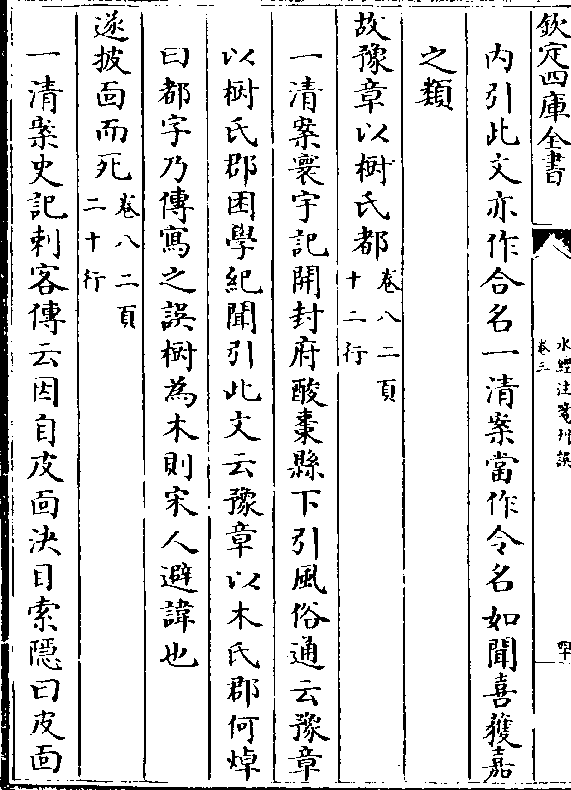 欽定四庫全書
水經注箋刊誤
卷三
四十
內引此文亦作合名一清案當作令名如聞喜獲嘉
之類
故豫章以樹氏都
卷八二頁
十二行
一清案寰宇記開封府酸棗縣下引風俗通云豫章
以樹氏郡困學紀聞引此文云豫章以木氏郡何焯
曰都字乃傳寫之誤樹為木則宋人避諱也
遂披面而死
卷八二頁
二十行
一清案史記刺客傳云因自皮面決目索隱曰皮面